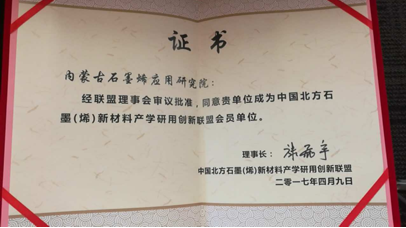 证书
内蒙古石墨烯应用研究院：
经联盟理事会审议批准，同意贵单位成为中国北方石
墨(烯)新材料产学研用创新联盟会员单位。
理事长：
中国北方石墨(烯)新材料产学研用创新联盟
二零一七年四月九日